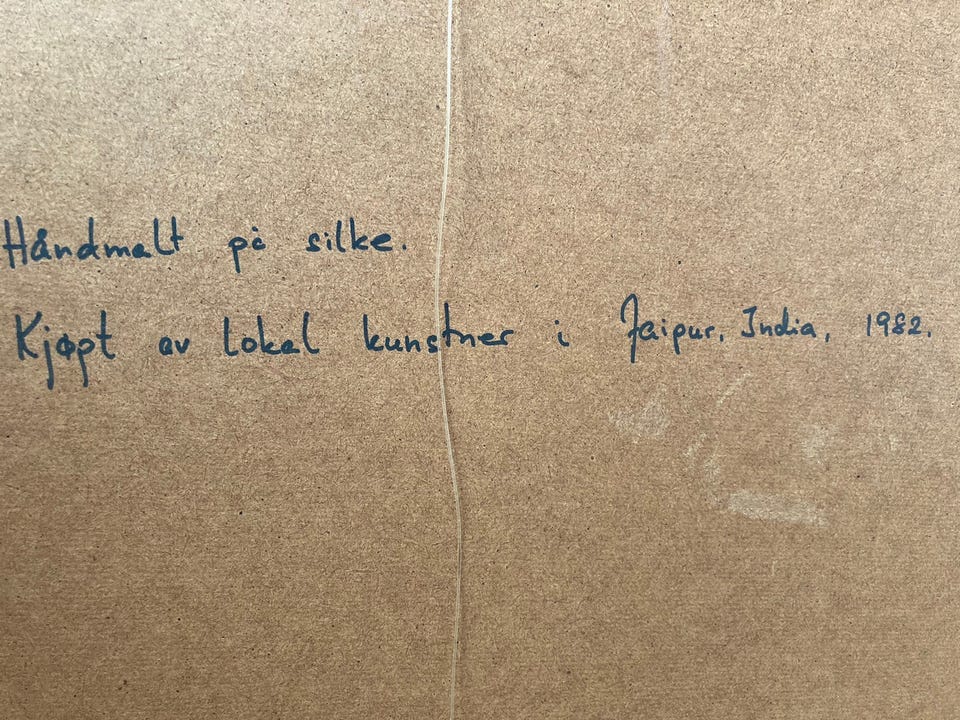 Håndmalt på silke.
Kjøpt av lokal kunstner i Jaipur, India, 1982.